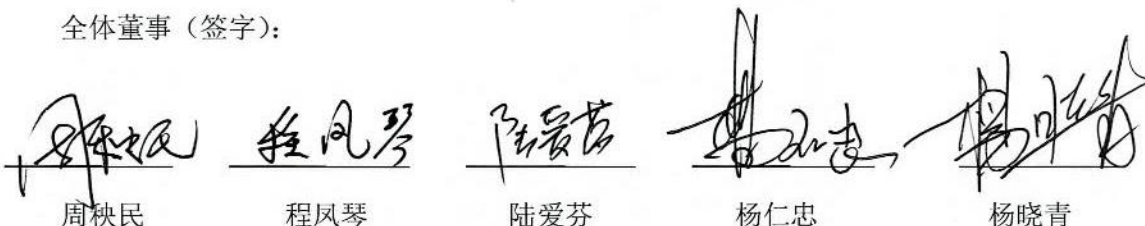 全体董事（签字）：
周秧民 程凤琴 陆爱芬 杨仁忠 杨晓青
周秧民 程凤琴 陆爱芬 杨仁忠 杨晓青